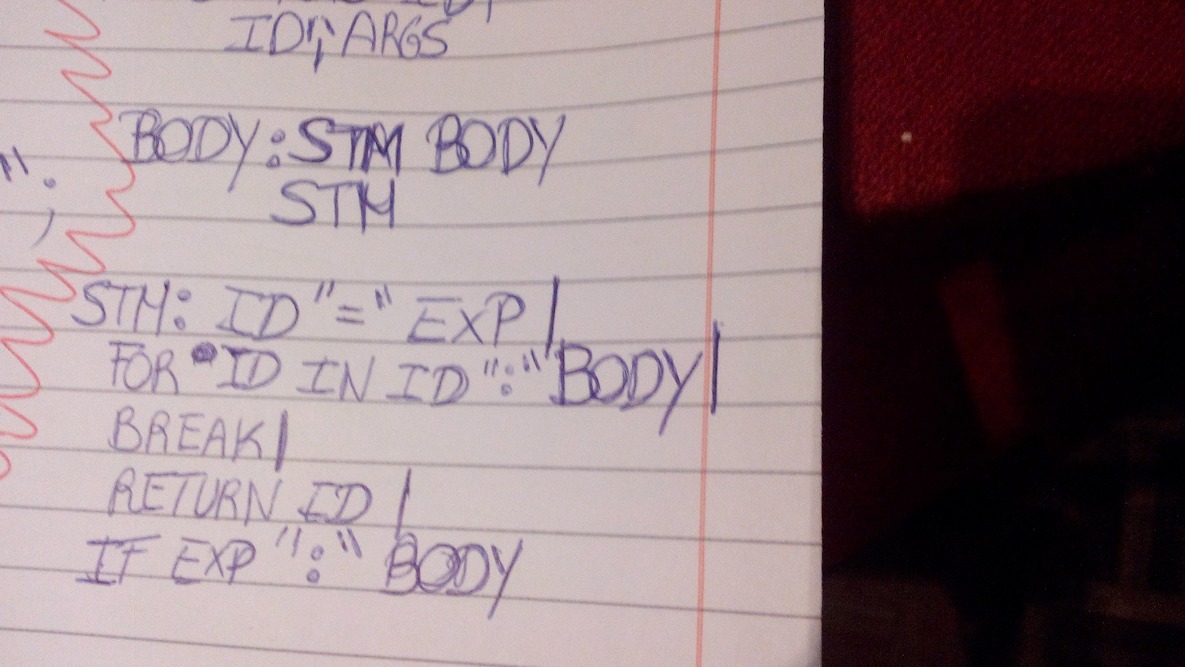 ID"," ARGS
BODY: STM BODY
STM
";
STM: ID "=" EXP |
FOR ID IN ID ":" BODY |
BREAK |
RETURN ID |
IF EXP ":" BODY